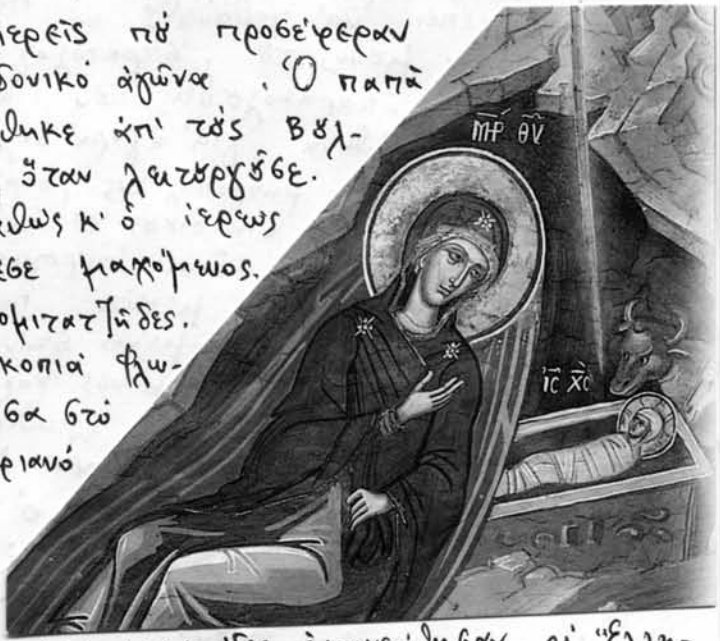 ιερεῖς πȣ́ προσέφεραν
δονικό ἀγῶνα. Ὁ παπὰ
θηκε ἀπ' τȣ̀ς Βȣλ-
ὅταν λειτȣργȣ̃σε.
κ' ὁ ἱερεως
μαχόμενος.
ομιτατζῆδες.
κοπιά Φλω-
σα στό
ριανό
ΜΡ ΘΥ
ΙC ΧC